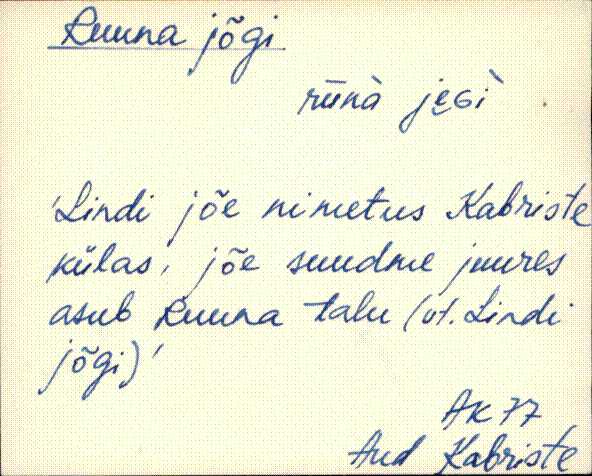 Ruuna jõgi
rūnà jeGì
'Lindi jõe nimetus Kabriste
külas, jõe suudme juures
asub Ruuna talu (vt. Lindi
jõgi)'
AK 77
Aud Kabriste